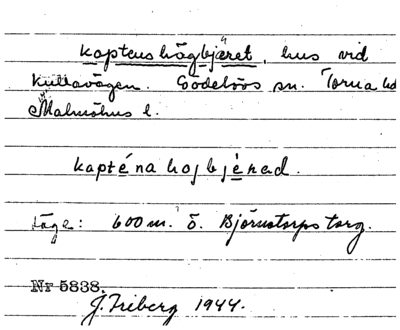 kaptenshögbjäret, hus vid
Kullavägen. Södelövs sn. Torna hd
Malmöhus l.
kapténahojbjérad.
Läge: 600 m. ö. Björnstorps torg.
Nr 5838.
J. Friberg 1944.